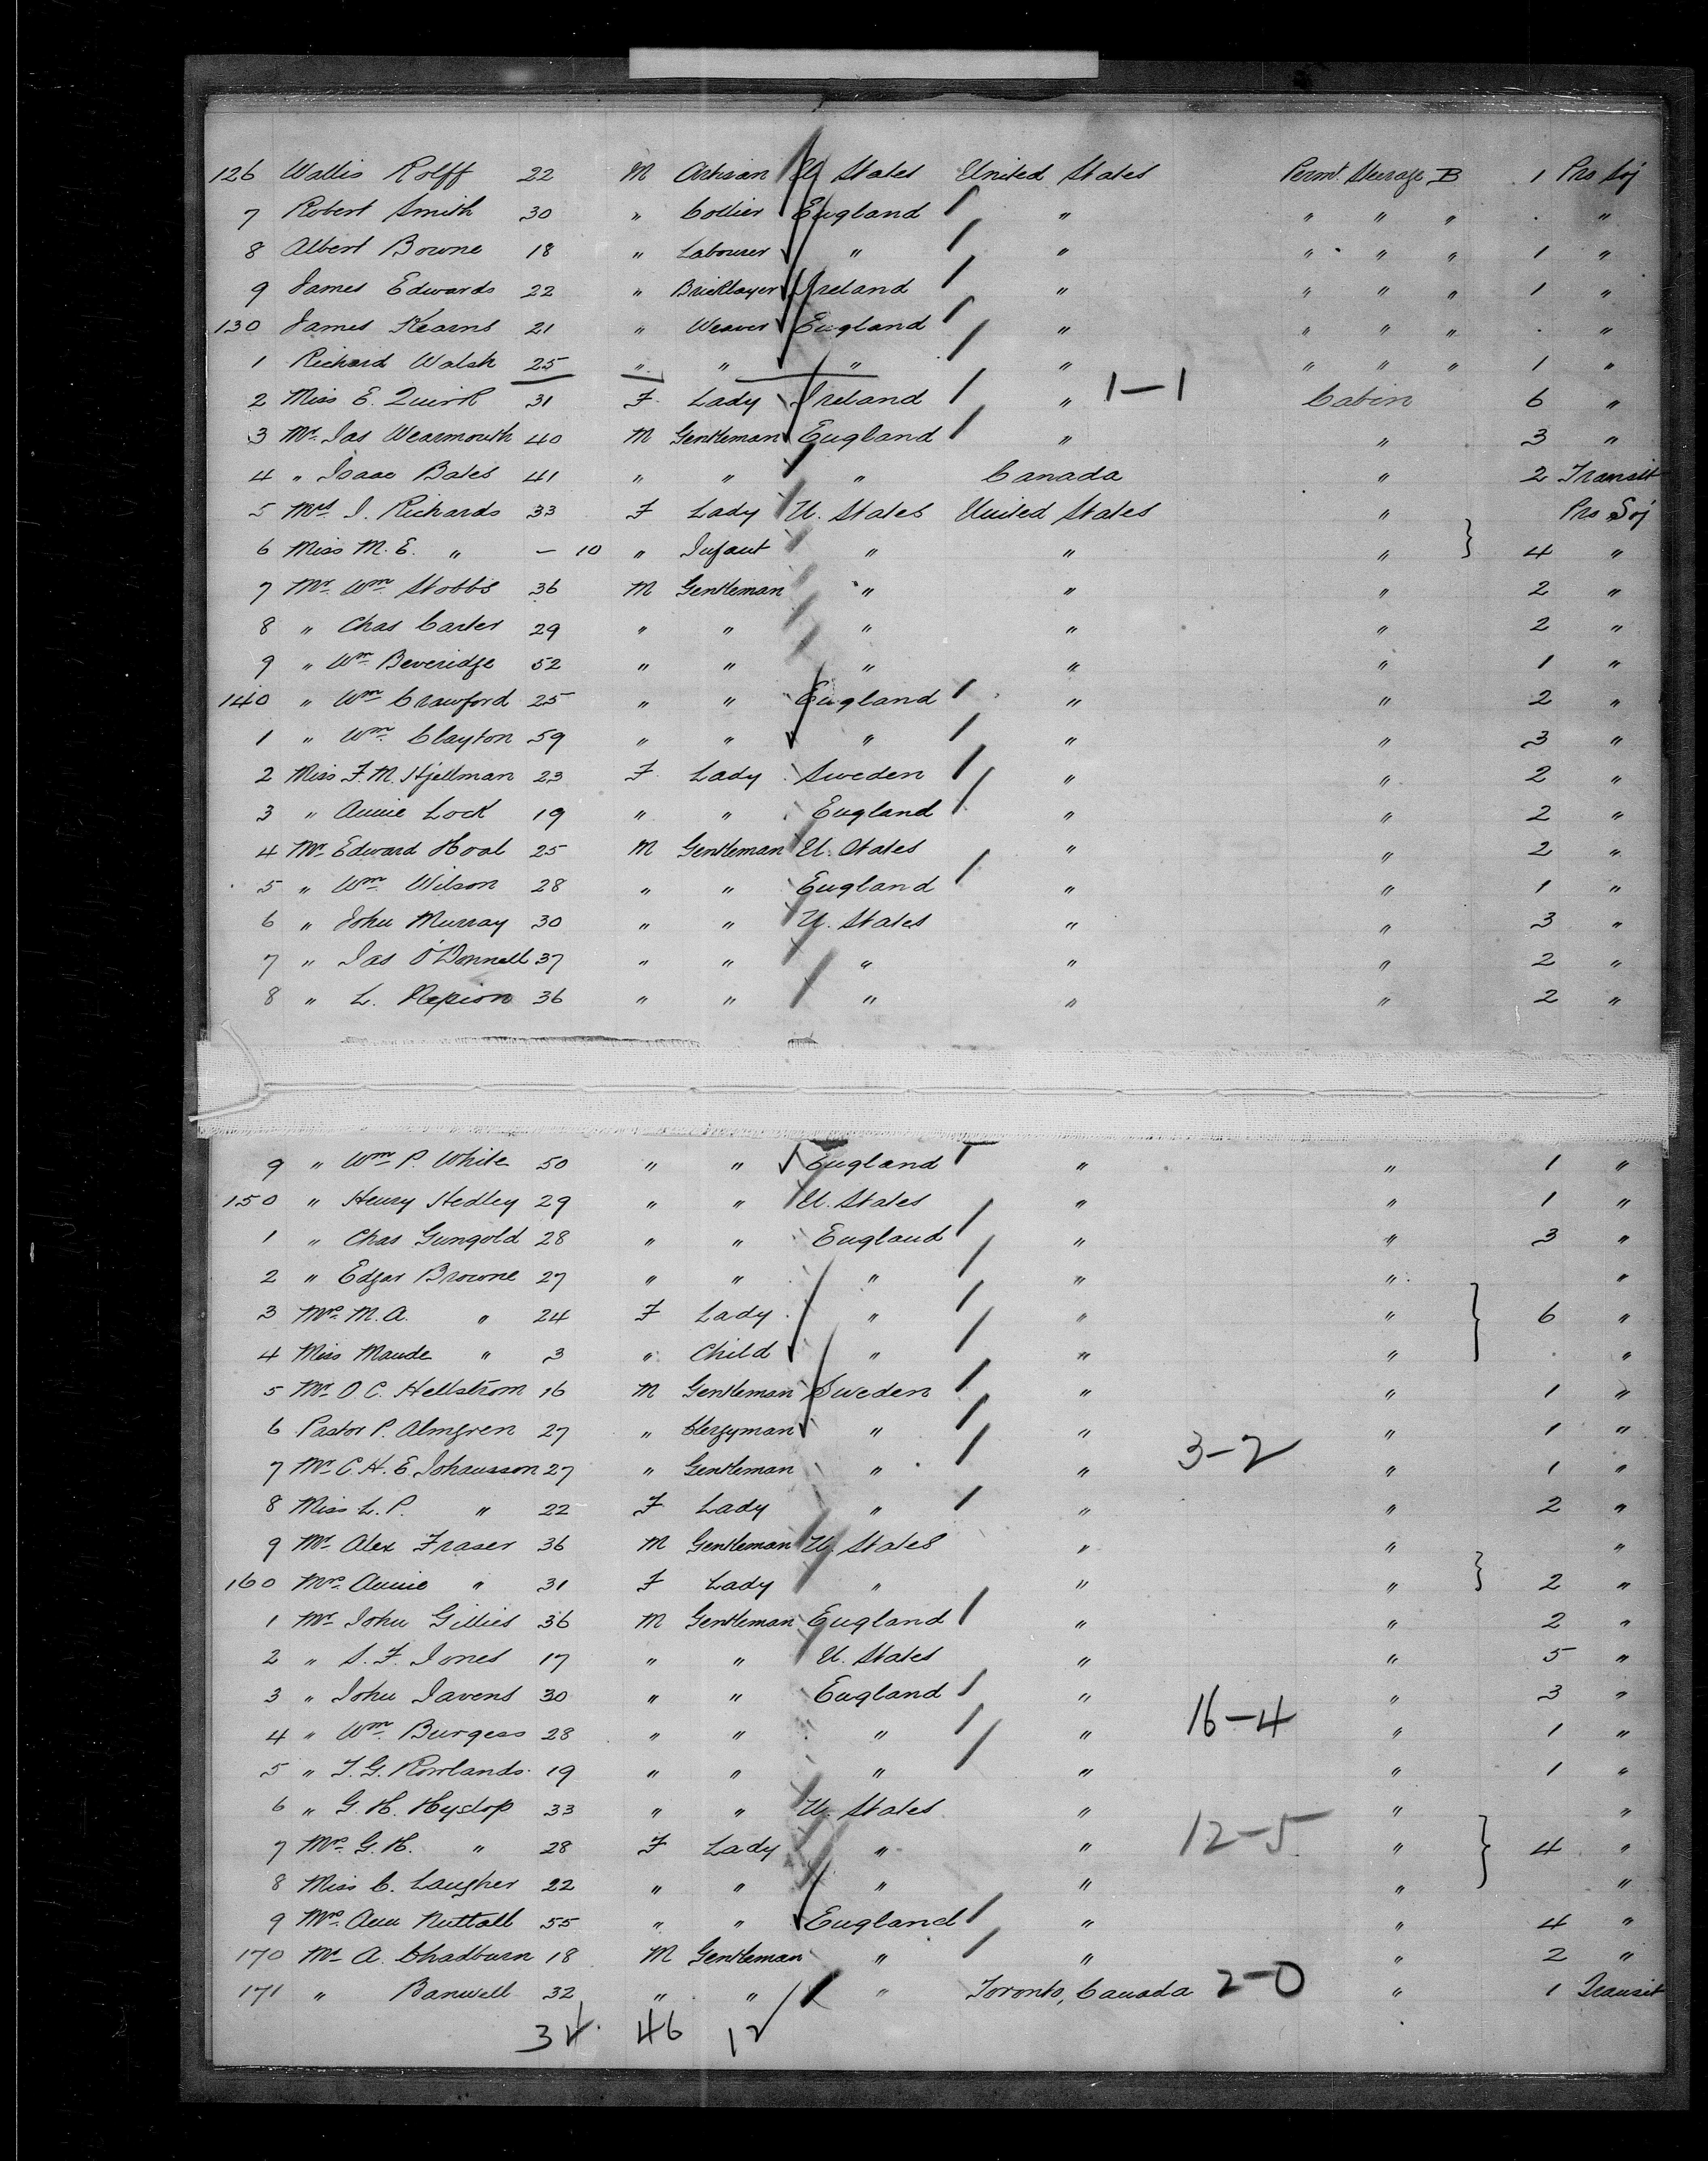 126 Wallis Rolff 22 M Artisan U States United States Permt. Steerage B 1 Pro Soj
7 Robert Smith 30 " Collier England " " " " . "
8 Albert Bowne 18 " Labourer " " " " " 1 "
9 James Edwards 22 " Bricklayer Ireland " " " " 1 "
130 James Kearns 21 " Weaver England " " " " . "
1 Richard Walsh 25 " " " " " " " 1 "
2 Miss E. Quirk 31 F Lady Ireland " 1-1 Cabin 6 "
3 Mr. Jas Wearmouth 40 M Gentleman England " " 3 "
4 " Isaac Bates 41 " " " Canada " 2 Transit
5 Mrs J. Richards 33 F Lady U. States United States " Pro Soj
6 Miss M. E. " - 10 " Infant " " " } 4 "
7 Mr. Wm. Stobbs 36 M Gentleman " " " 2 "
8 " Chas Carter 29 " " " " " 2 "
9 " Wm. Beveridge 52 " " " " " 1 "
140 " Wm Crawford 25 " " England " " 2 "
1 " Wm. Clayton 59 " " " " " 3 "
2 Miss F. M. Hjellman 23 F Lady Sweden " " 2 "
3 " Annie Lock 19 " " England " " 2 "
4 Mr. Edward Hoal 25 M Gentleman U. States " " 2 "
5 " Wm. Wilson 28 " " England " " 1 "
6 " John Murray 30 " " U. States " " 3 "
7 " Jas O'Donnell 37 " " " " " 2 "
8 " L. Nepion 36 " " " " " 2 "
9 " Wm P. White 50 " " England " " 1 "
150 " Henry Hedley 29 " " U. States " " 1 "
1 " Chas Gungold 28 " " England " " 3 "
2 " Edgar Browne 27 " " " " " "
3 Mrs. M. A. " 24 F Lady " " " } 6 "
4 Miss Maude " 3 " Child " " " . "
5 Mr. O. C. Hellström 16 M Gentleman Sweden " " 1 "
6 Pastor P. Almgren 27 " Clergyman " " " 1 "
7 Mr. C. H. E. Johansson 27 " Gentleman " " 3-2 " 1 "
8 Miss L. P. " 22 F Lady " " " 2 "
9 Mr. Alex Fraser 36 M Gentleman U. States " " "
160 Mrs. Annie " 31 F Lady " " " } 2 "
1 Mr. John Gillies 36 M Gentleman England " " 2 "
2 " S. F. Jones 17 " " U. States " " 5 "
3 " John Javens 30 " " England " 16-4 " 3 "
4 " Wm. Burgess 28 " " " " " 1 "
5 " T. G. Rowlands 19 " " " " " 1 "
6 " G. H. Hyslop 33 " " U. States " " "
7 Mrs. G. H. " 28 F Lady " " 12-5 " } 4 "
8 Miss C. Laugher 22 " " " " " "
9 Mrs. Ann Nuttall 55 " " England " " 4 "
170 Mr. A. Chadburn 18 M Gentleman " " " 2 "
171 " Banwell 32 " " " Toronto, Canada 2-0 " 1 Transit
34 46 12